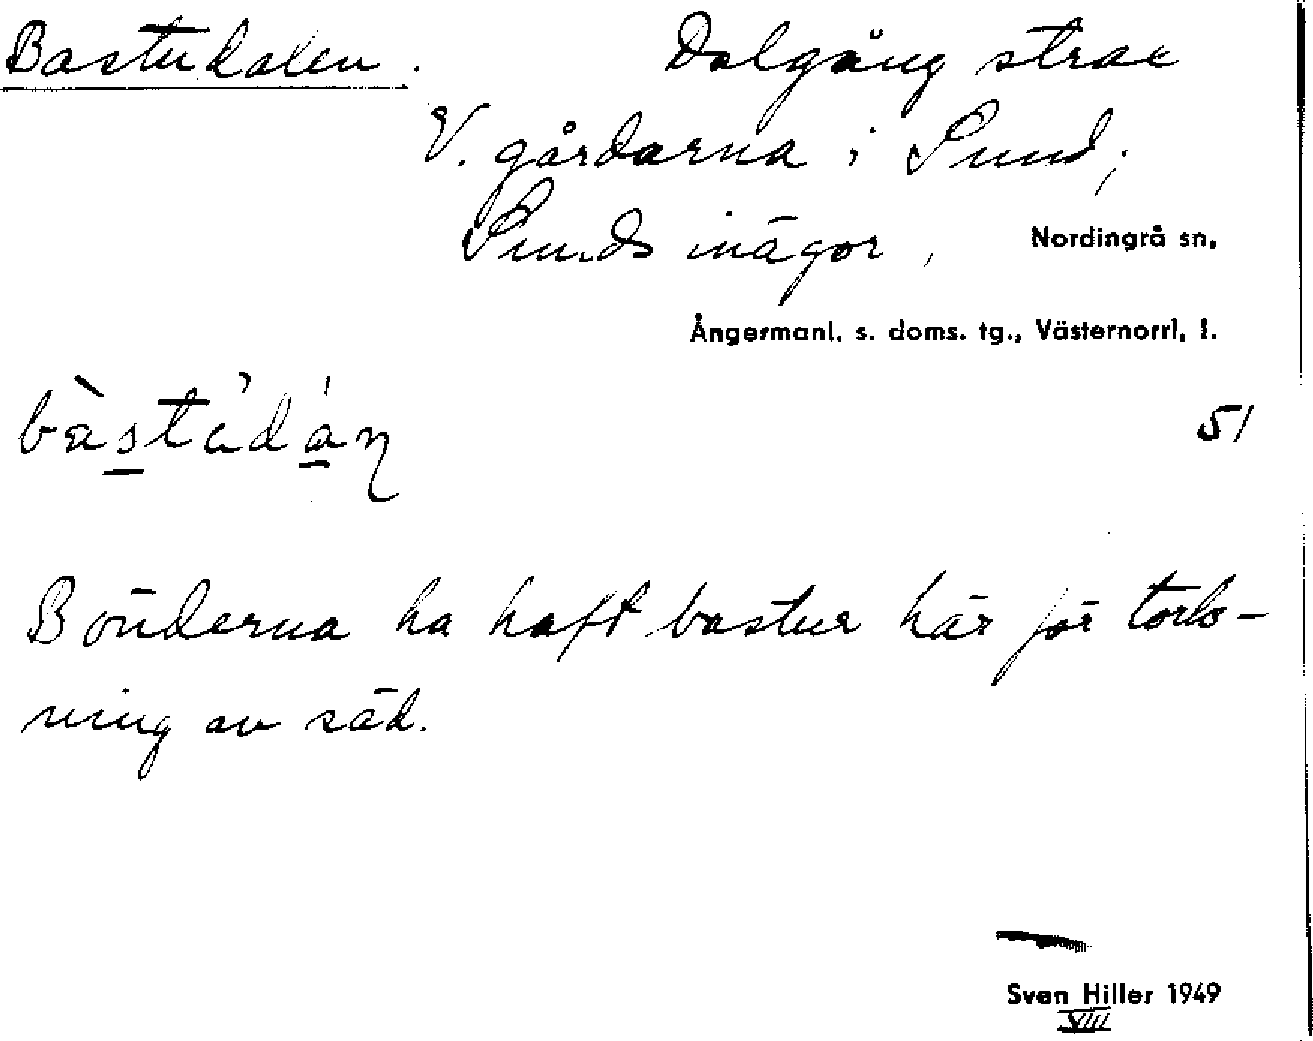 Bastudalen. Dalgång strax
V. gårdarna i Sund;
Sunds inägor, Nordingrå sn,
Ångermanl. s. doms. tg., Västernorrl. l.
51
Bönderna ha haft bastur här för tork-
ning av säd.
Sven Hiller 1949
VIII